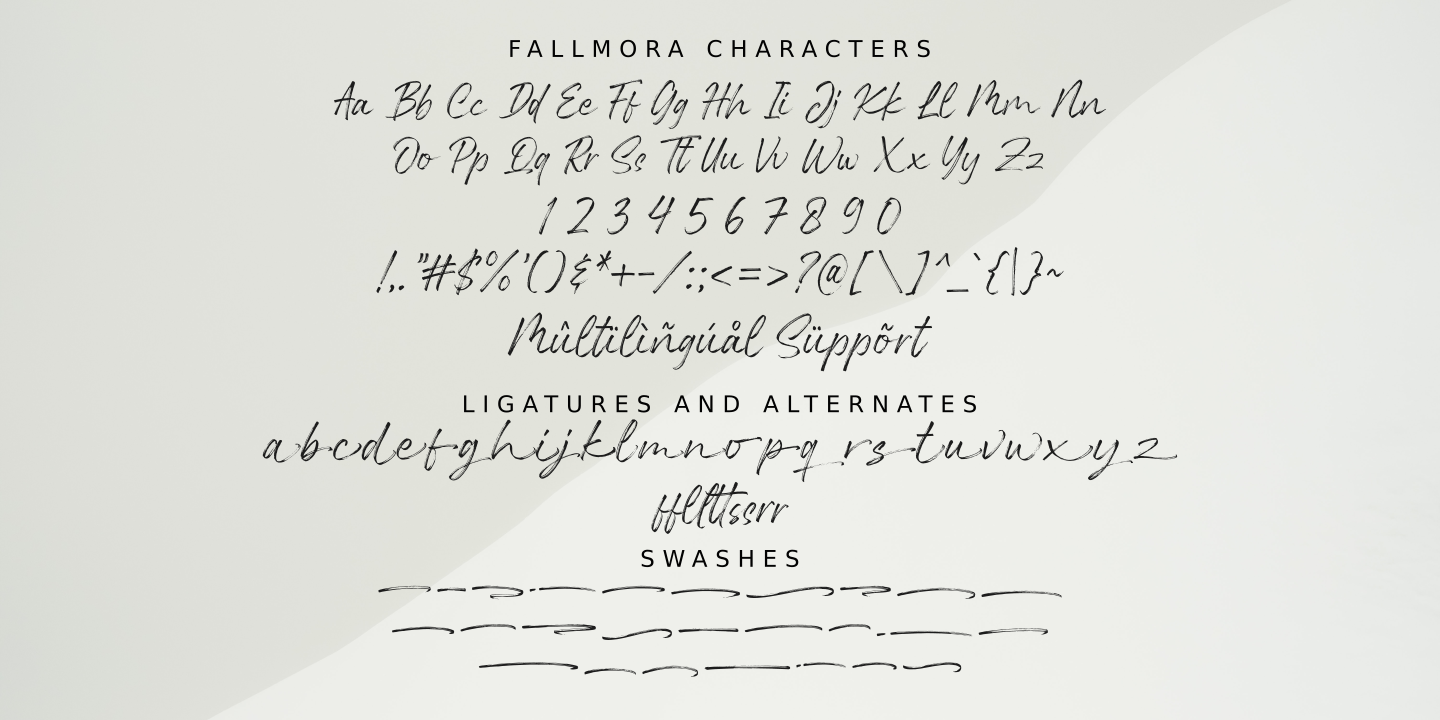 FALLMORA CHARACTERS
Aa Bb Cc Dd Ee Ff Gg Hh Ii Jj Kk Ll Mm Nn
Oo Pp Qq Rr Ss Tt Uu Vv Ww Xx Yy Zz
1 2 3 4 5 6 7 8 9 0
!,."#$%'()&*+-/:;<=>?@[\]^_`{|}~
Mûltïlìñgúål Süppõrt
LIGATURES AND ALTERNATES
abcdefghijklmnopq rstuvwxyz
ffllttssrr
SWASHES